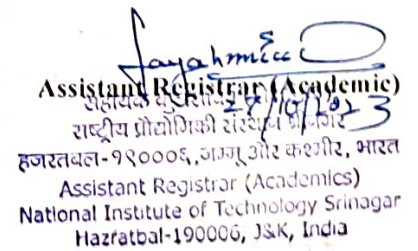 Assistant Registrar (Academic)
सहायक कुलसचिव
राष्ट्रीय प्रौद्योगिकी संस्थान श्रीनगर
हजरतबल-१९०००६,जम्मू और कश्मीर, भारत
Assistant Registrar (Academics)
National Institute of Technology Srinagar
Hazratbal-190006, J&K, India